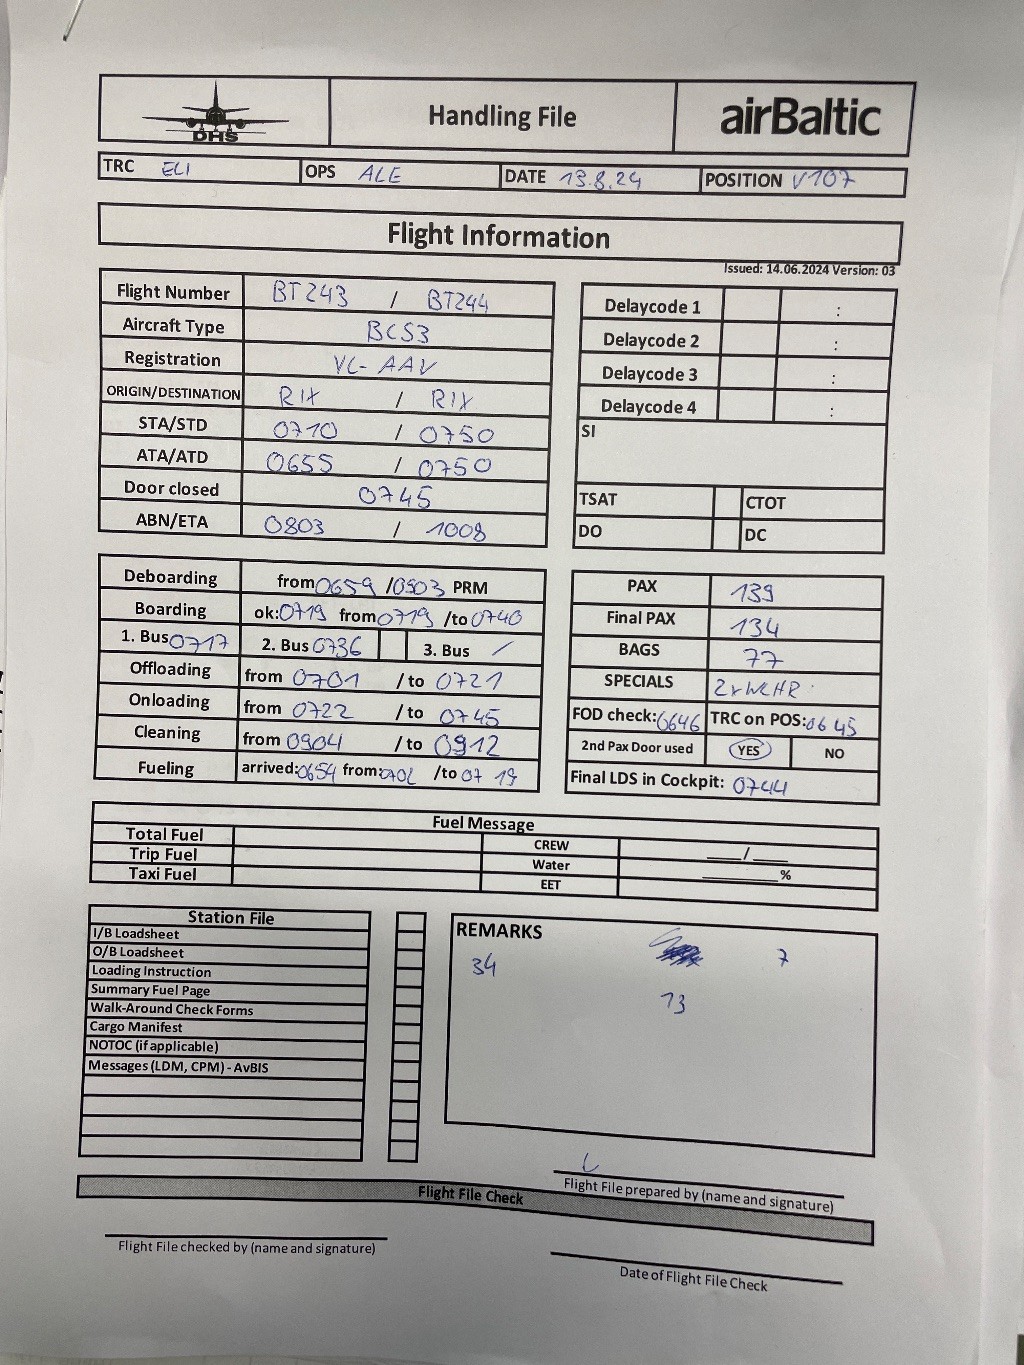 DHS
Handling File
airBaltic
TRC ELI OPS ALE DATE 13.8.24 POSITION V107
Flight Information
Issued: 14.06.2024 Version: 03
Flight Number BT243 / BT244
Aircraft Type BCS3
Registration YL-AAV
ORIGIN/DESTINATION RIX / RIX
STA/STD 0710 / 0750
ATA/ATD 0655 / 0750
Door closed 0745
ABN/ETA 0803 / 1008
Delaycode 1 :
Delaycode 2 :
Delaycode 3 :
Delaycode 4 :
SI
TSAT CTOT
DO DC
Deboarding from 0659 /0903 PRM
Boarding ok:0719 from 0719 /to 0740
1. Bus 0717 2. Bus 0736 3. Bus /
Offloading from 0701 /to 0721
Onloading from 0722 /to 0745
Cleaning from 0904 /to 0912
Fueling arrived:0654 from:0702 /to 0719
PAX 139
Final PAX 134
BAGS 77
SPECIALS 2xWCHR
FOD check: 0646 TRC on POS: 0645
2nd Pax Door used YES NO
Final LDS in Cockpit: 0744
Fuel Message
Total Fuel CREW __/__
Trip Fuel Water ______%
Taxi Fuel EET
Station File
I/B Loadsheet
O/B Loadsheet
Loading Instruction
Summary Fuel Page
Walk-Around Check Forms
Cargo Manifest
NOTOC (if applicable)
Messages (LDM, CPM) - AvBIS
REMARKS
34 7
13
Flight File prepared by (name and signature)
Flight File Check
Flight File checked by (name and signature)
Date of Flight File Check